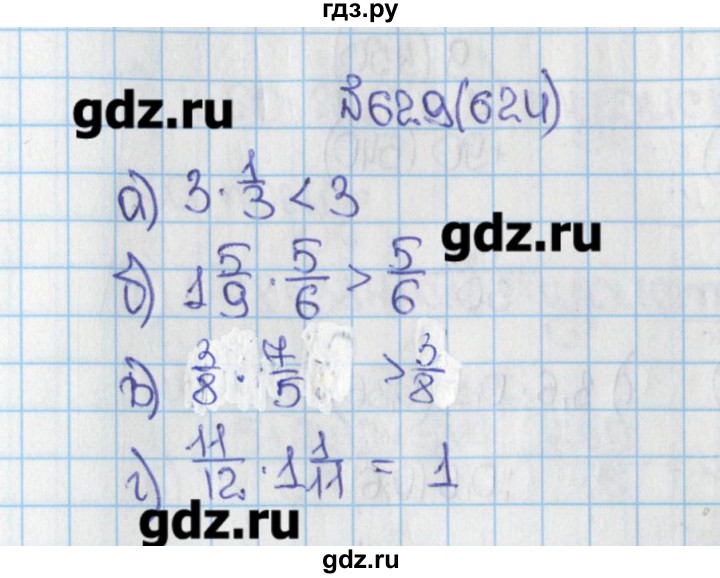 гдз.ру
gdz.ru
№629(624)
а) 3 · 1/3 < 3
gdz.ru
б) 1 5/9 · 5/6 > 5/6
в) 3/8 · 7/5 > 3/8
г) 11/12 · 1 1/11 = 1
gdz.ru
gdz.ru